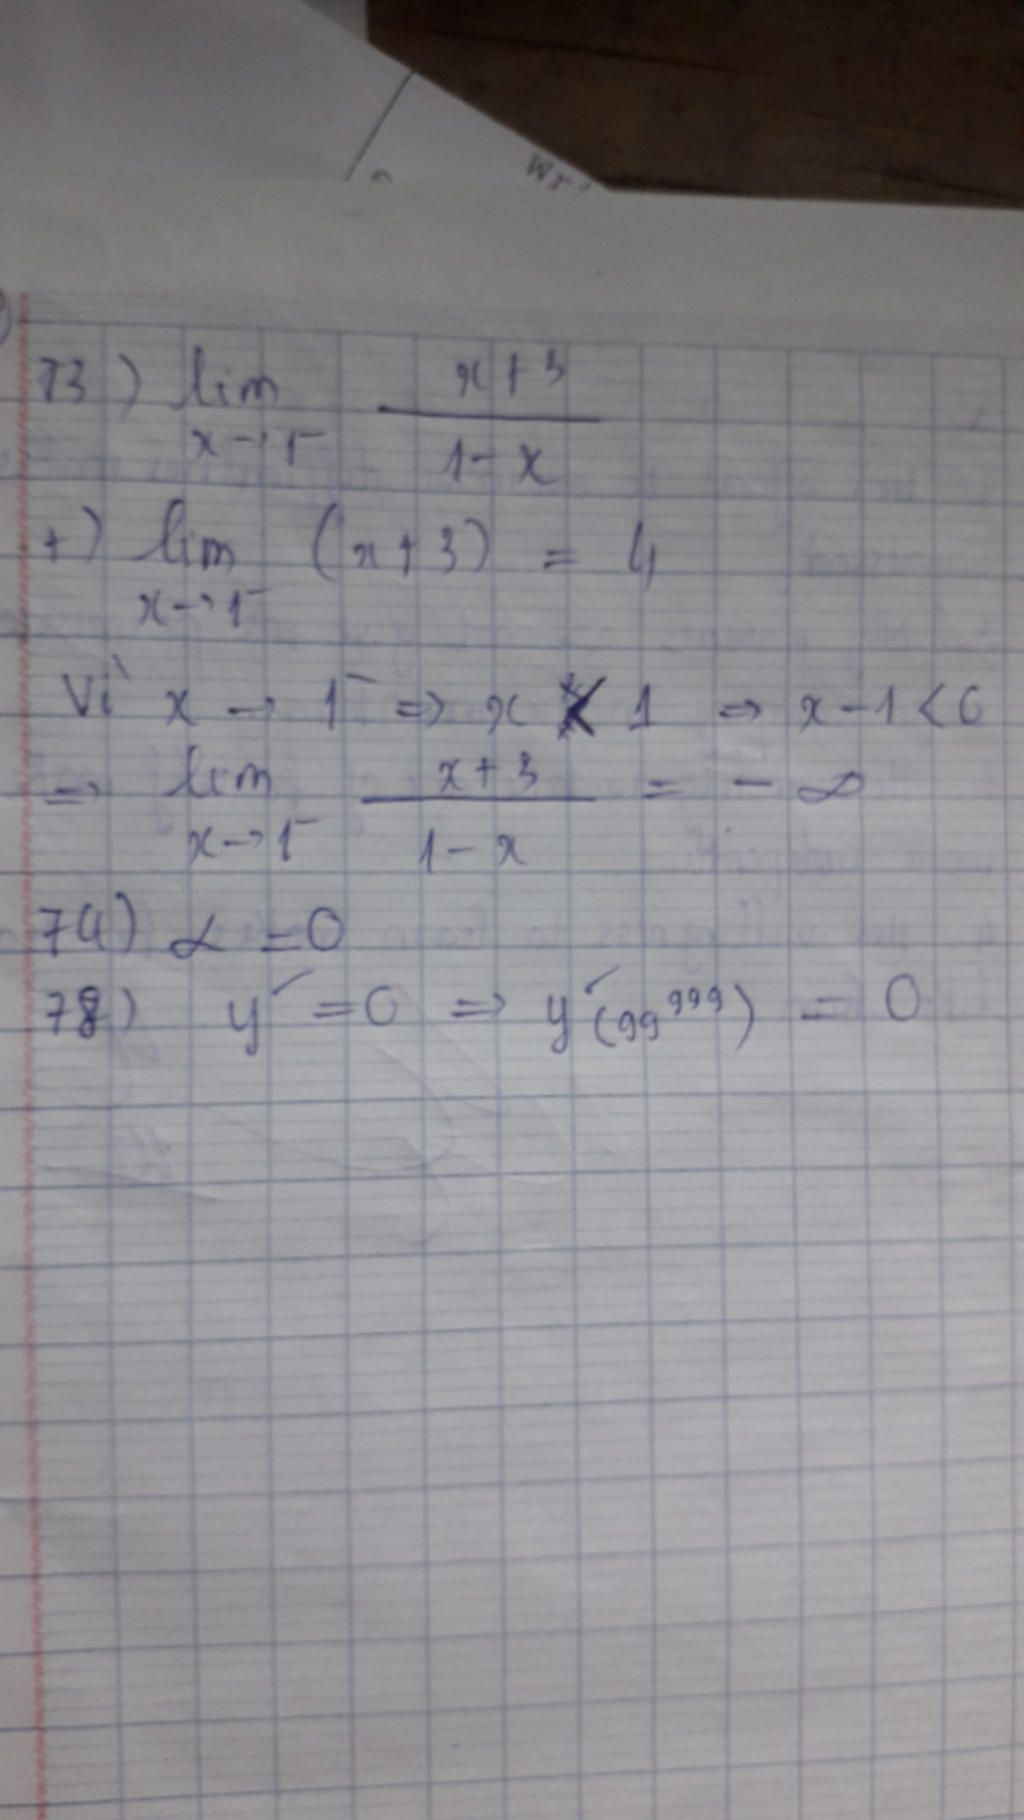 73) lim x+3
x→1⁻ 1-x
+) lim (x+3) = 4
x→1⁻
Vì x → 1⁻ ⇒ x < 1 ⇒ x-1<0
⇒ lim x+3 = -∞
x→1⁻ 1-x
74) α = 0
78) y' = 0 ⇒ y'(99⁹⁹⁹) = 0